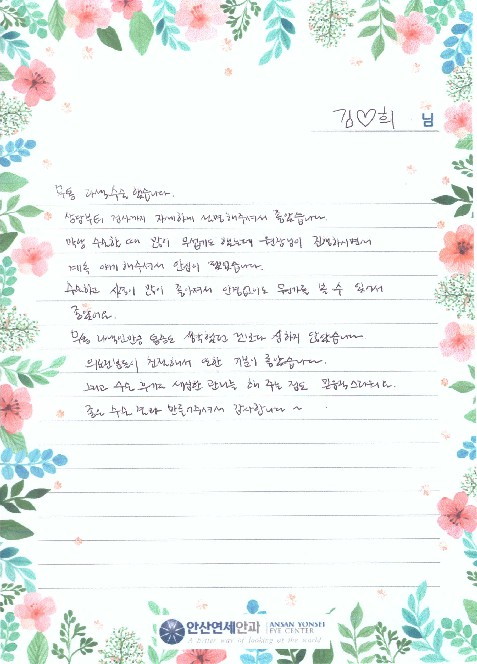 김♡희 님
무통 라섹수술 했습니다.
상담부터 검사까지 자세하게 설명해주셔서 좋았습니다.
막상 수술할 때 많이 무섭기도 했는데 원장님이 진행하시면서
계속 얘기해주셔서 안심이 됐습니다.
수술하고 시력이 많이 좋아져서 안경없이도 무언가를 볼 수 있어서
좋았어요.
무통 라섹인만큼 통증도 생각했던 것보다 심하지 않았습니다.
의료진분들이 친절해서 또한 기분이 좋았습니다.
그리고 수술 후에도 세심한 관리를 해 주는 점도 만족스러워요.
좋은 수술 결과 만들어주셔서 감사합니다 ~
안산연세안과 ANSAN YONSEI
EYE CENTER
A better way of looking at the world